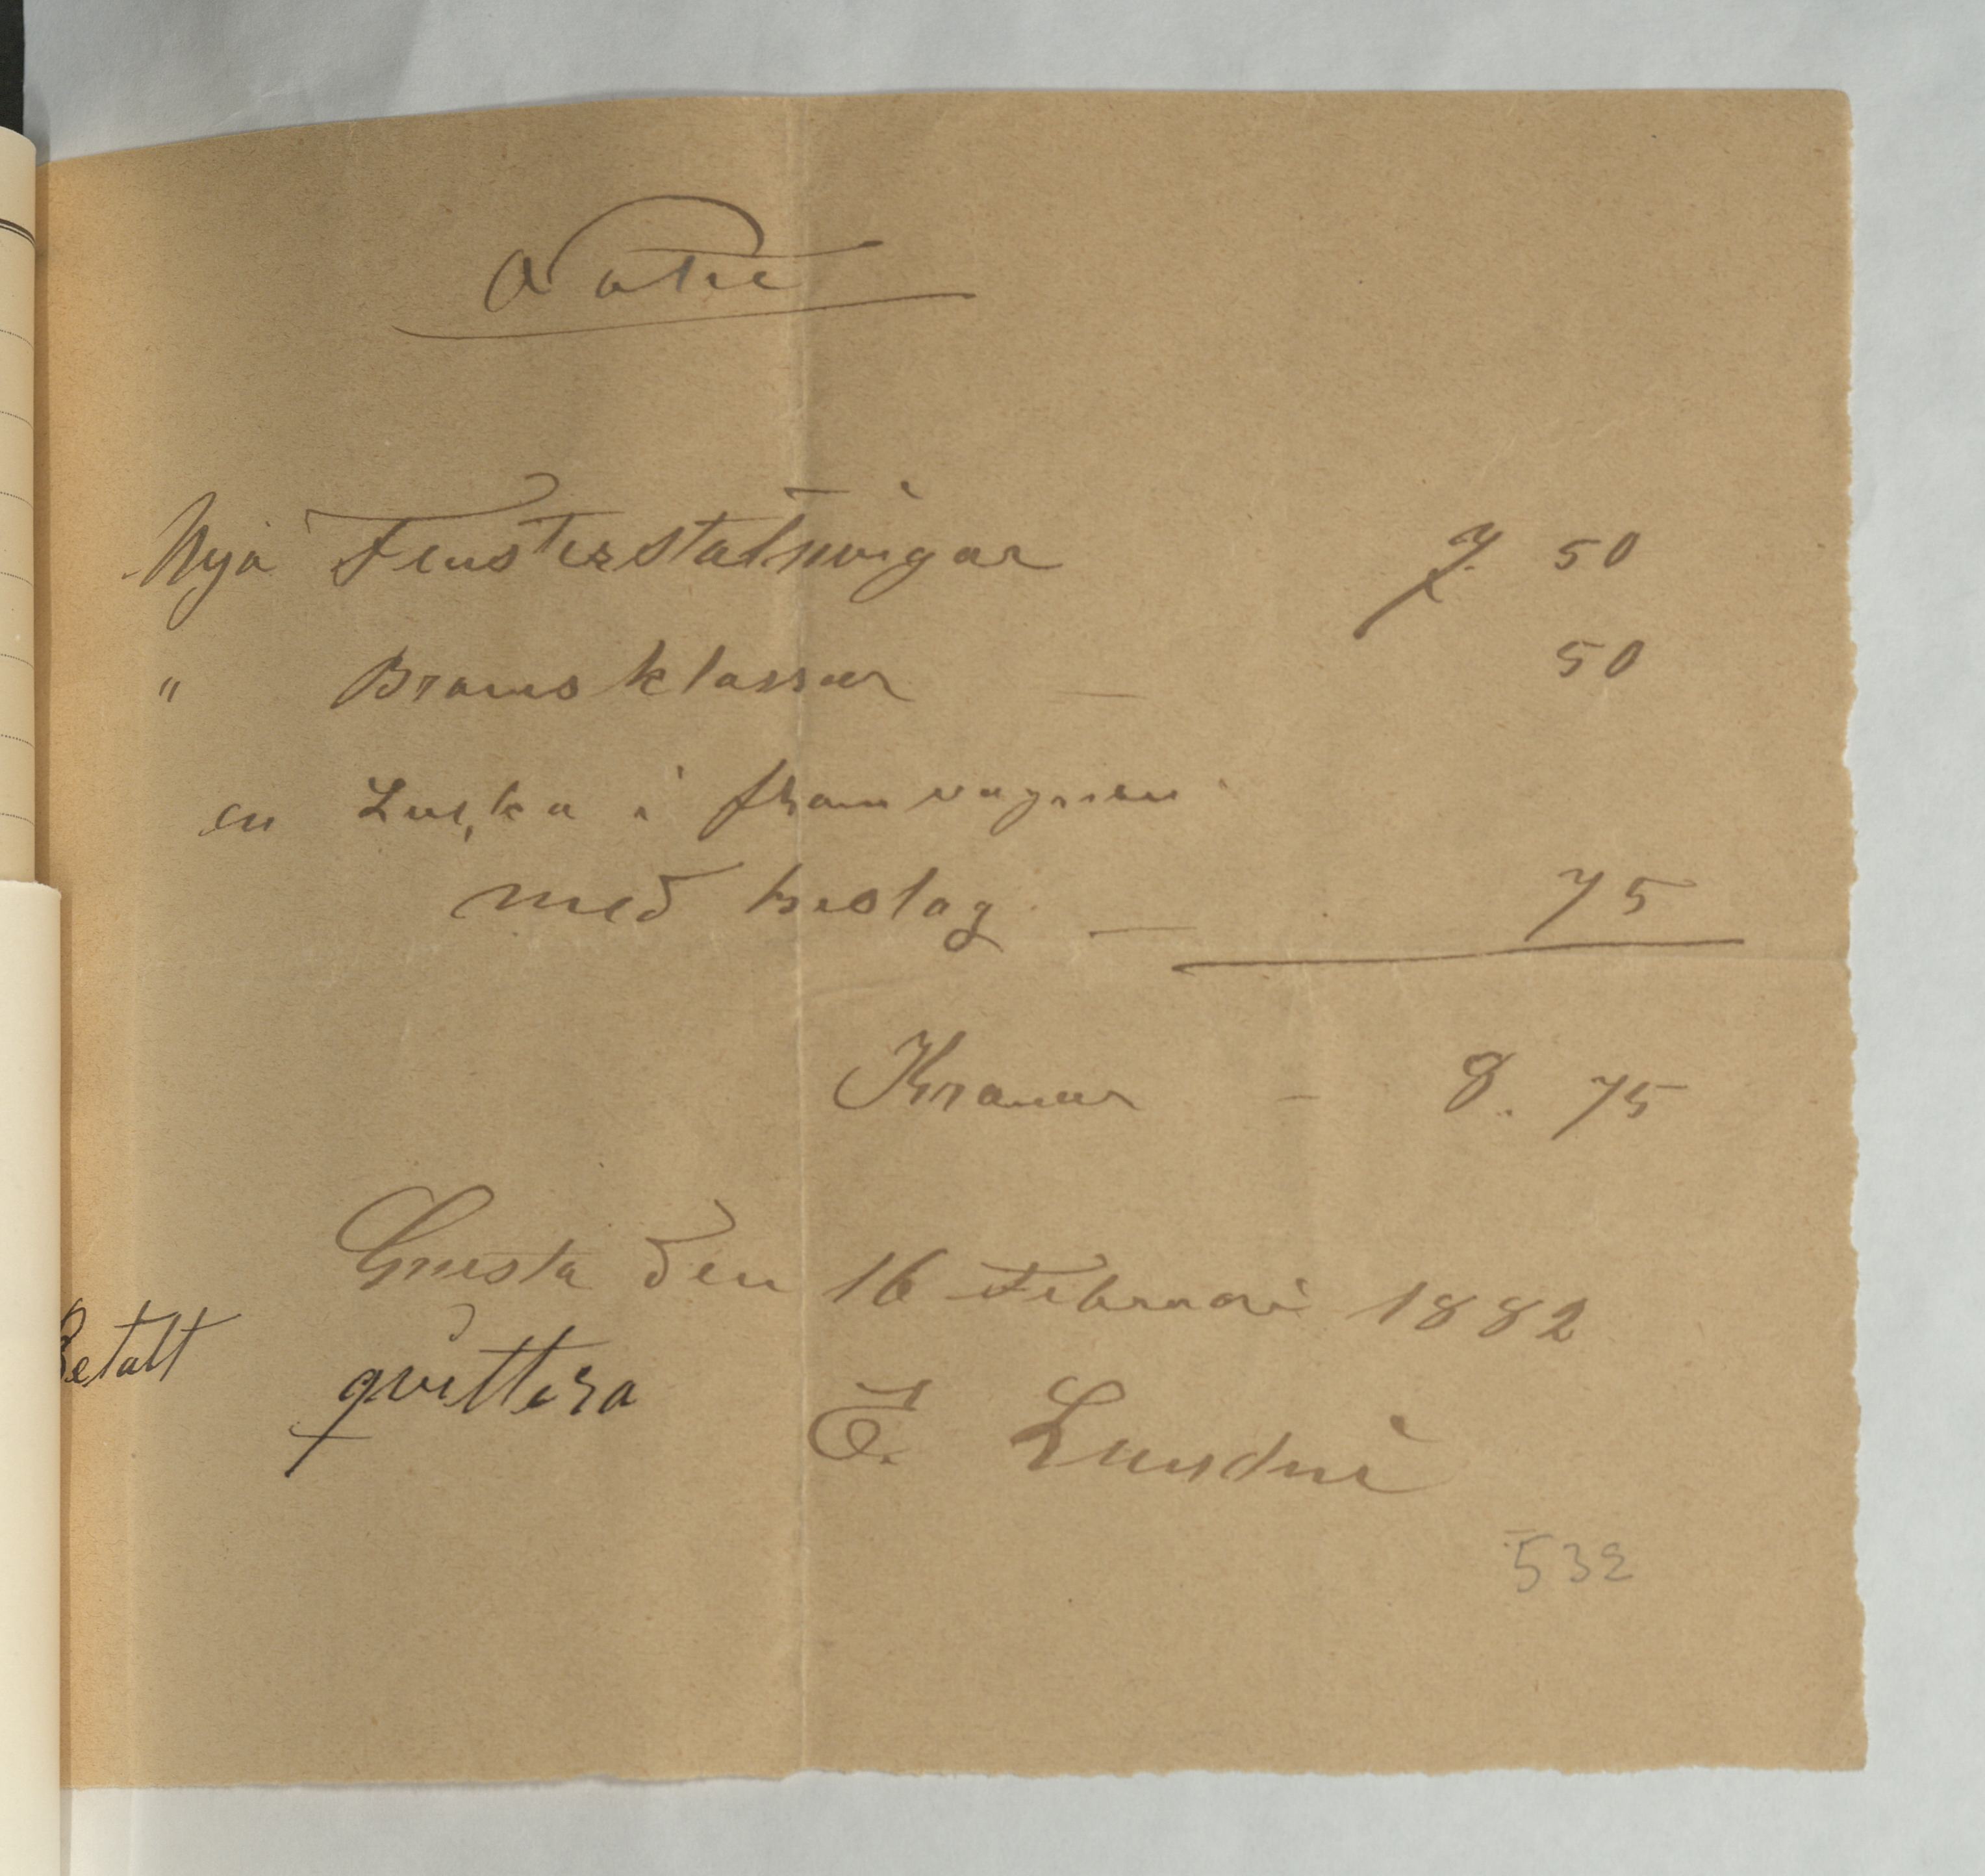 Not
Nya Fensterstalningar 7. 50
" Bromsklassar — 50
en Lucka i framvagnen
med beslag — 75
Kronor - 8. 75
Gnesta den 16 Februari 1882
Betalt qvitteras
E. Lundin
532